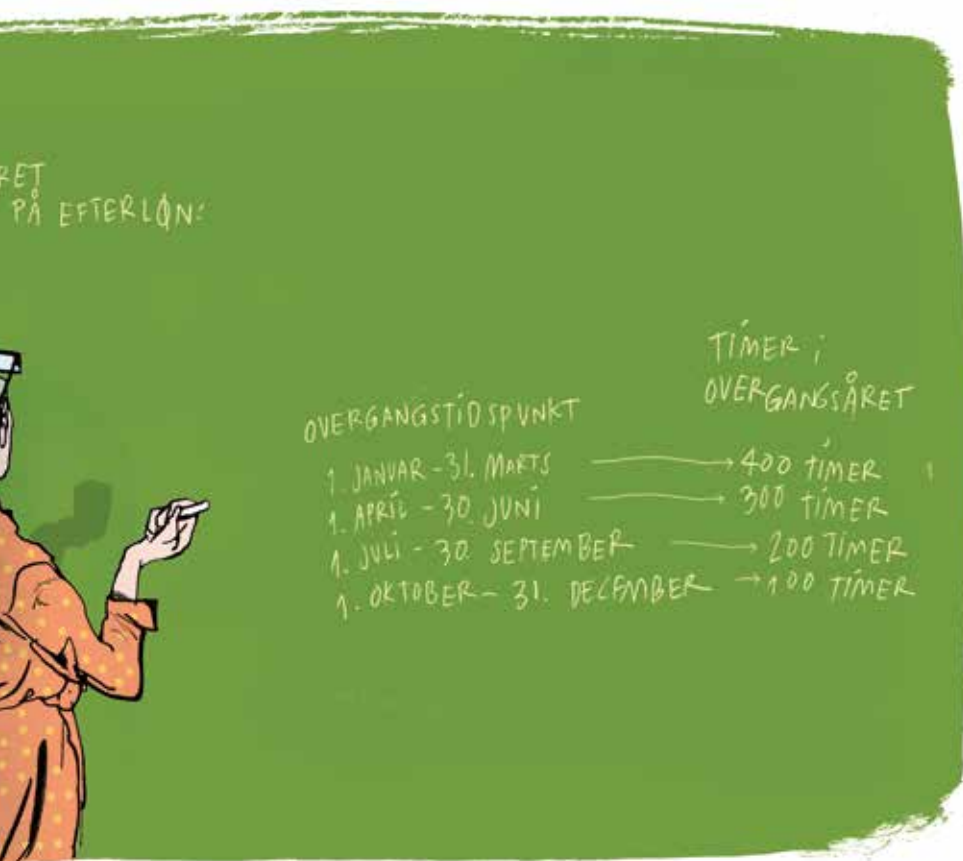 RET
PÅ EFTERLØN:
TIMER i
OVERGANGSÅRET
OVERGANGSTIDSPUNKT
1. JANUAR - 31. MARTS → 400 TIMER
1. APRIL - 30. JUNI → 300 TIMER
1. JULI - 30. SEPTEMBER → 200 TIMER
1. OKTOBER - 31. DECEMBER → 100 TIMER